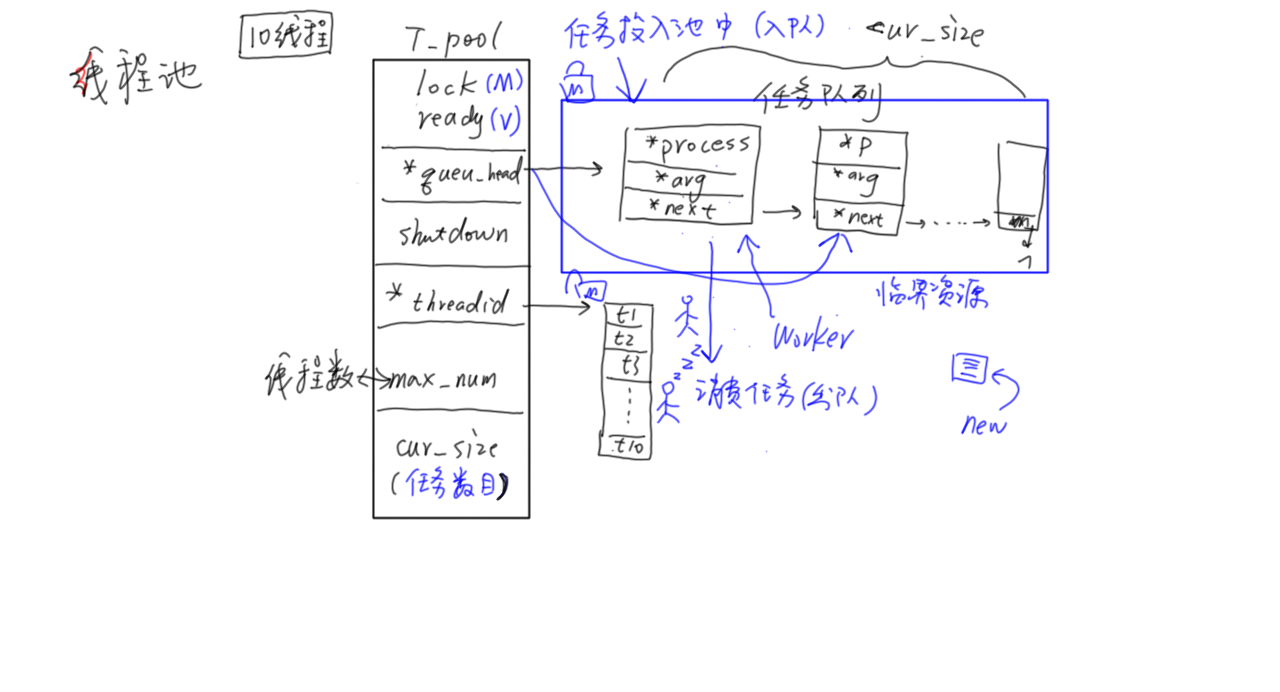 线程池
10线程
T_pool
lock (M)
ready (V)
*queu_head
shutdown
* threadid
线程数
max_num
cur_size
(任务数目)
任务投入池中 (入队)
cur_size
m
任务队列
*process
*arg
*next
*p
*arg
*next
临界资源
m
t1
t2
t3
t10
Worker
z z z
z z
消费任务(出队)
new